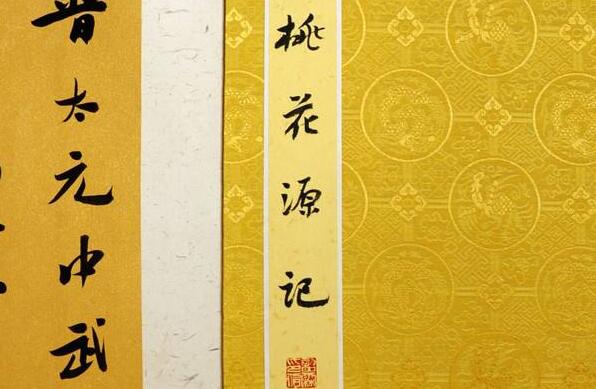 桃花源记
晋太元中武